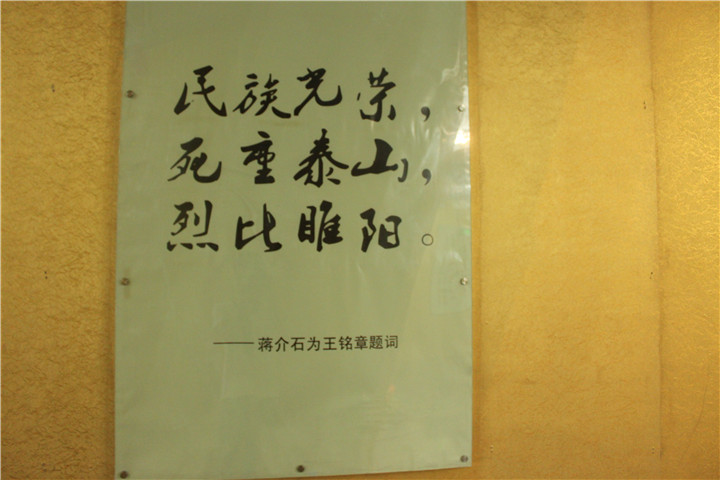 民族光荣，
死重泰山，
烈比睢阳。
——蒋介石为王铭章题词